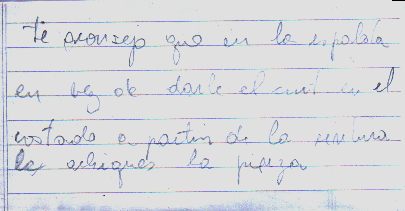 te aconsejo que en la espalda
en vez de darle el cont en el
costado a partir de la sentura
le achiques la pieza